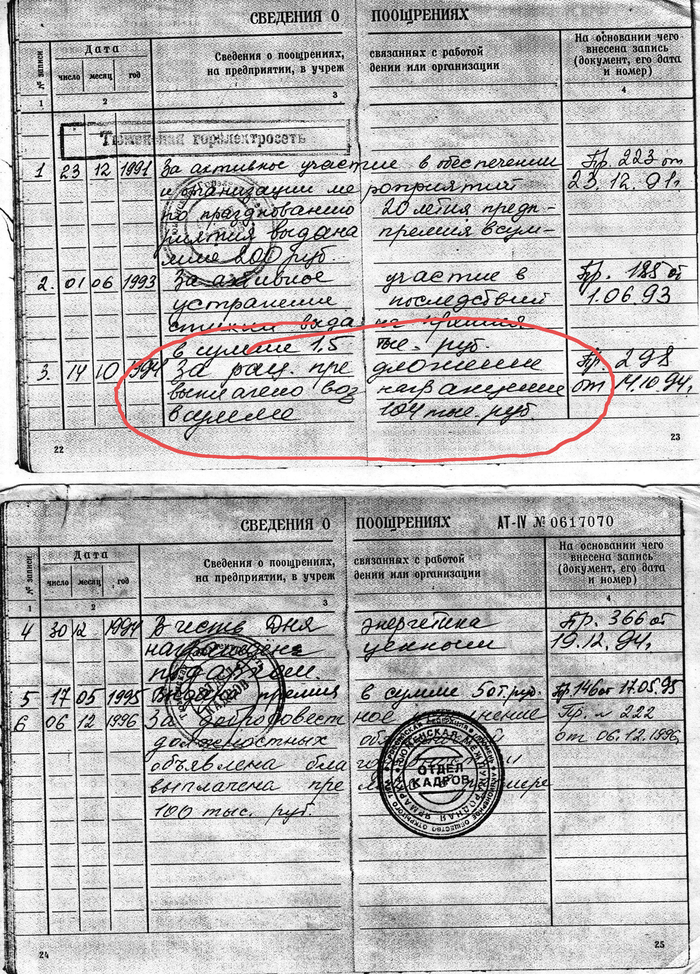 СВЕДЕНИЯ О ПООЩРЕНИЯХ
№ записи
Дата
число месяц год
Сведения о поощрениях, связанных с работой
на предприятии, в учреждении или организации
На основании чего
внесена запись
(документ, его дата
и номер)
1 2 3 4
Тюменская горэлектросеть
1 23 12 1991 За активное участие в обеспечении Пр. 223 от
и организации мероприятий 23.12.91г.
по празднованию 20летия предп-
риятия выдана премия в сум-
ме 200 руб.
2. 01 06 1993 За активное участие в Пр. 185 от
устранение последствий 1.06.93
стихии премия
в сумме 1,5 тыс. руб.
3. 14 10 1994 За рац. предложение Пр 298
выплачено вознаграждение от 14.10.94г.
в сумме 104 тыс. руб.
22 23
СВЕДЕНИЯ О ПООЩРЕНИЯХ АТ-IV № 0617070
№ записи
Дата
число месяц год
Сведения о поощрениях, связанных с работой
на предприятии, в учреждении или организации
На основании чего
внесена запись
(документ, его дата
и номер)
1 2 3 4
4 30 12 1994 В честь Дня энергетика Пр. 366 от
награждена ценным 19.12.94г
подарком.
5 17 05 1995 премия в сумме 50т.руб. Пр.146от 17.05.95
6 06 12 1996 За добросовестное Пр. № 222
должностных от 06.12.1996
объявлена
выплачена
100 тыс. руб.
ОТДЕЛ
КАДРОВ
24 25